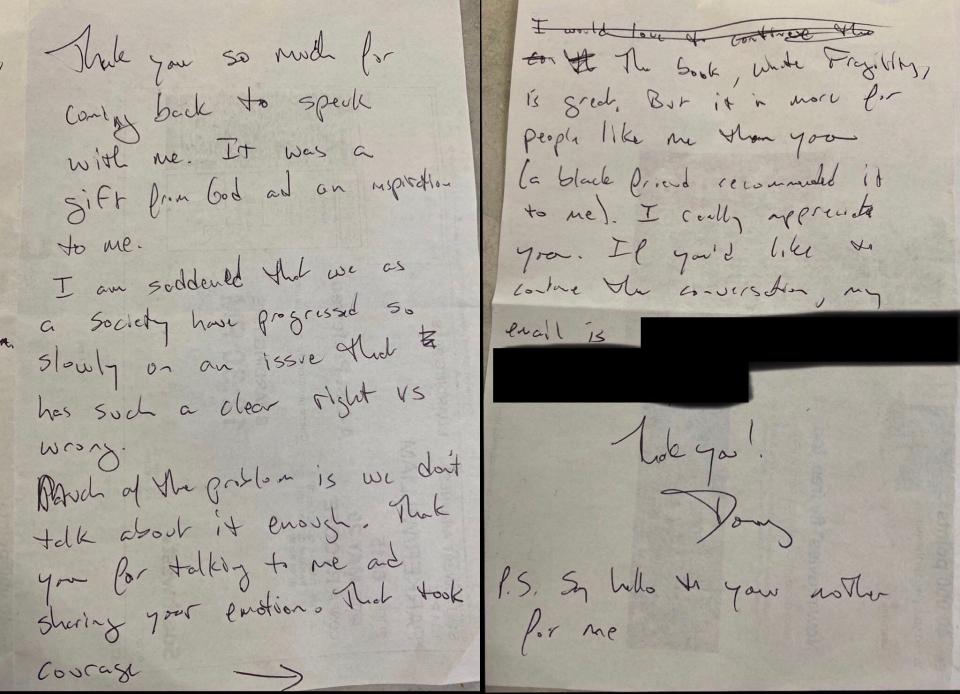 Thank you so much for
coming back to speak
with me. It was a
gift from God and an inspiration
to me.
I am saddened that we as
a society have progressed so
slowly on an issue that
has such a clear right vs
wrong.
Much of the problem is we don't
talk about it enough. Thank
you for talking to me and
sharing your emotion. That took
courage →
I would love to continue the
The book, White Fragility,
is great. But it is more for
people like me than you
(a black friend recommended it
to me). I really appreciate
you. If you'd like to
continue the conversation, my
email is
Thank you!
P.S. Say hello to your mother
for me